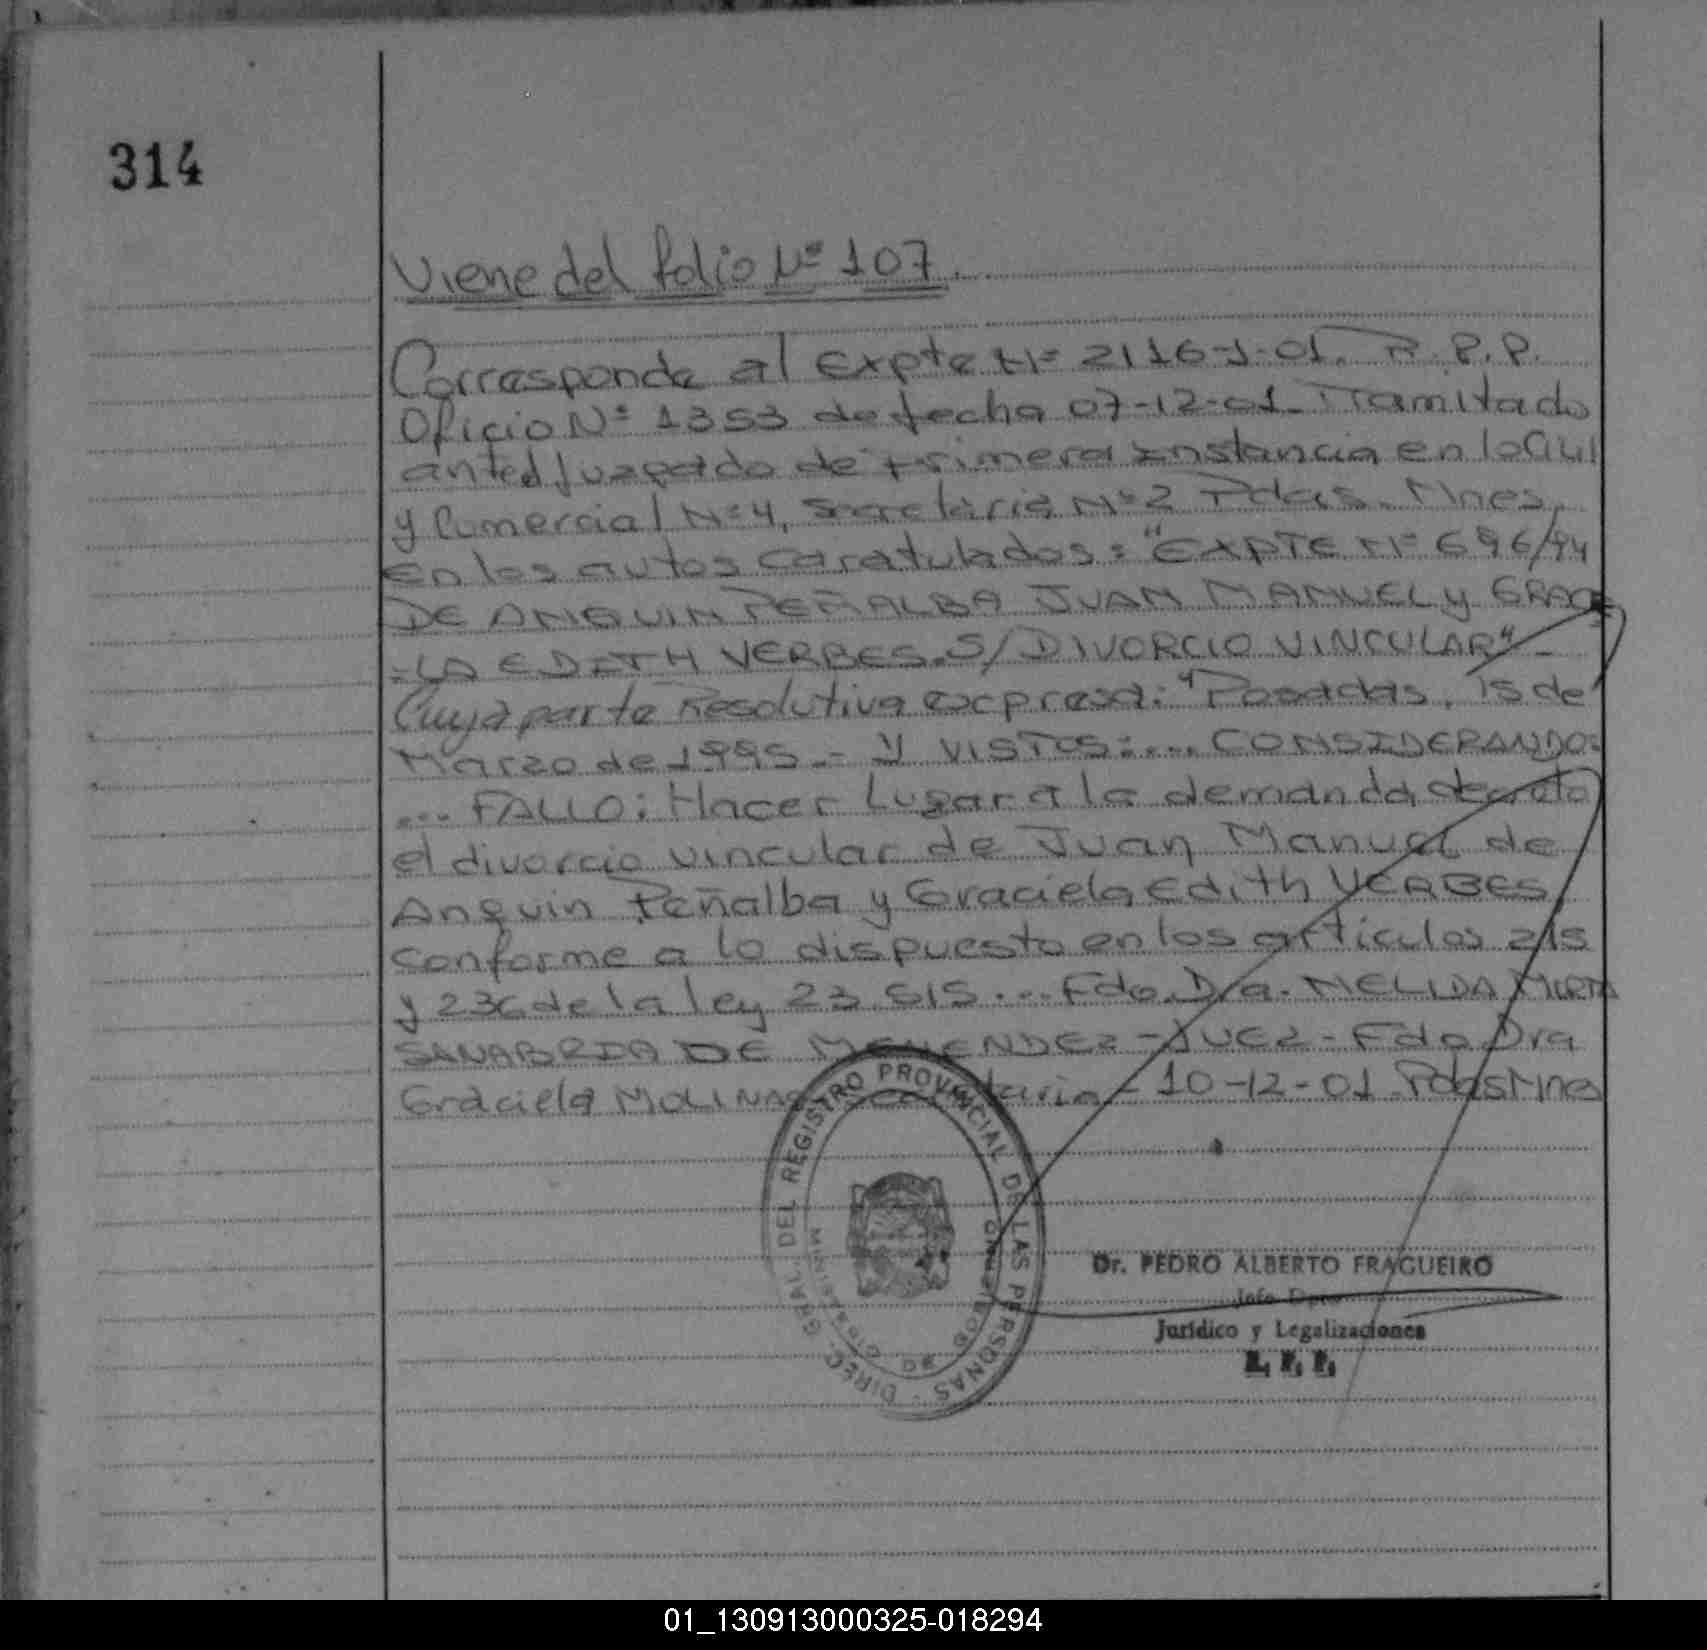 314
Viene del folio Nº 107.
Corresponde al Expte Nº 2116-J-01. R.P.P.
Oficio Nº 1353 de fecha 07-12-01. Tramitado
anteel Juzgado de Primera Instancia en lo Civil
y Comercial Nº 4, Secretaria Nº 2 Pdas. Mnes.
en los autos caratulados: "EXPTE Nº 696/94
DE ANQUIN PEÑALBA JUAN MANUEL y GRACIE
-LA EDITH VERBES. S/ DIVORCIO VINCULAR" -
Cuya parte Resolutiva expresa: "Posadas, 15 de
Marzo de 1995.- Y VISTOS:... CONSIDERANDO:
... FALLO: Hacer Lugar a la demanda, decreto
el divorcio vincular de Juan Manuel de
Anquin Peñalba y Graciela Edith VERBES
conforme a lo dispuesto en los artículos 215
y 236 de la ley 23.515... Fdo. Dra. NELIDA MIRTA
SANABRIA DE MENENDEZ - JUEZ - Fdo Dra
Graciela MOLINAS Secretaria - 10-12-01. Pdas Mnes
DIREC. GRAL. DEL REGISTRO PROVINCIAL DE LAS PERSONAS
Dr. PEDRO ALBERTO FRAGUEIRO
Jefe Dpto
Jurídico y Legalizaciones
R. P. P.
01_130913000325-018294